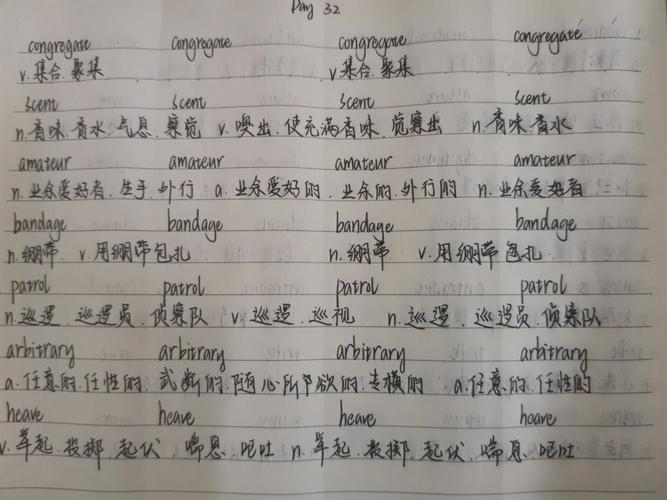 Day 32
congregate congregate congregate congregate
v.集合.聚集 v.集合.聚集
scent scent scent scent
n.香味.香水.气息.察觉 v.嗅出.使充满香味.觉察出 n.香味.香水
amateur amateur amateur amateur
n.业余爱好者.生手.外行 a.业余爱好的.业余的.外行的 n.业余爱好者
bandage bandage bandage bandage
n.绷带. v.用绷带包扎 n.绷带 v.用绷带包扎
patrol patrol patrol patrol
n.巡逻.巡逻员.侦察队 v.巡逻.巡视 n.巡逻.巡逻员.侦察队
arbitrary arbitrary arbitrary arbitrary
a.任意的.任性的.武断的.随心所欲的.专横的 a.任意的.任性的
heave heave heave heave
v.举起.投掷.起伏 喘息.呕吐 n.举起.投掷.起伏.喘息.呕吐